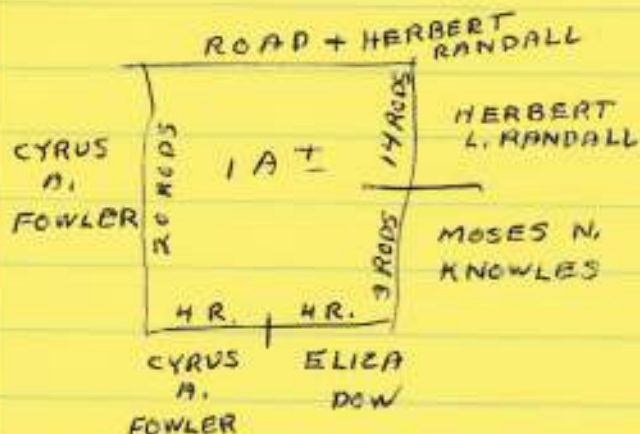 ROAD + HERBERT
RANDALL
CYRUS
A.
FOWLER
20 RODS
1 A ±
14 RODS
HERBERT
L. RANDALL
RODS
MOSES N.
KNOWLES
4 R.
4 R.
CYRUS
A.
FOWLER
ELIZA
DOW